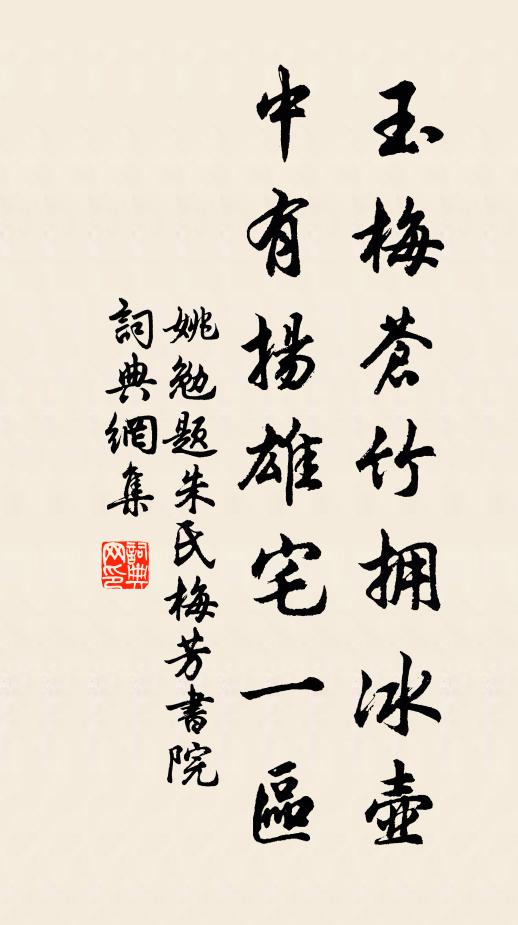 玉梅蒼竹拥冰壺
中有揚雄宅一區
姚勉题朱氏梅芳書院
詞典網集
詞典网印